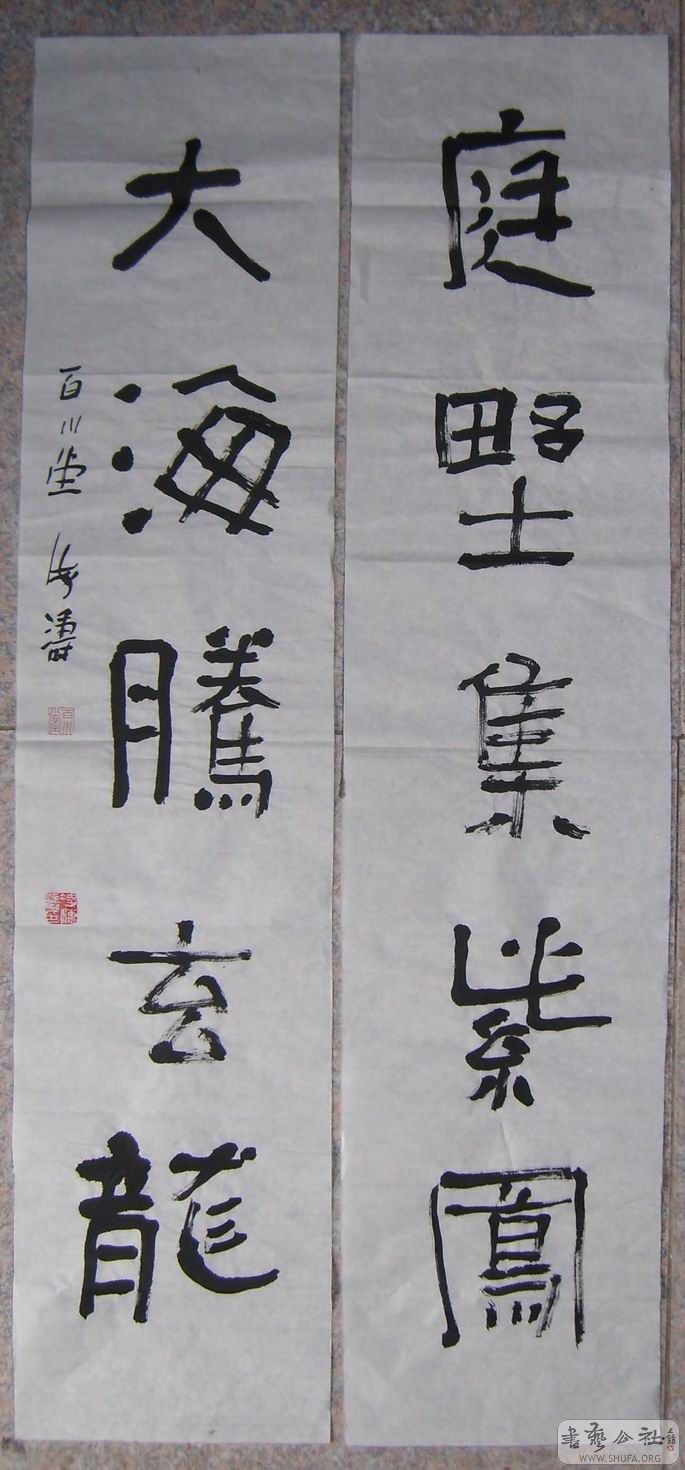 庭野集紫鳳
大海騰玄龍
百川堂 海濤
書藝公社
WWW.SHUFA.ORG